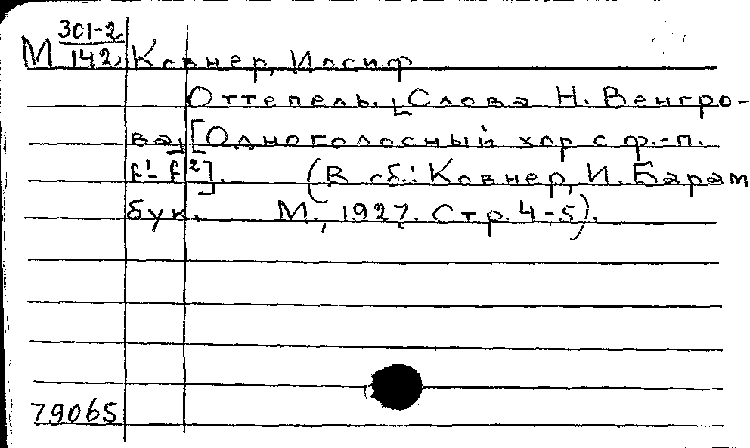 М 301-2/142 Ковнер, Иосиф
Оттепель. [Слова Н. Венгро-
ва] [Одноголосный хор с ф.-п.
f¹-f²]. (В сб.: Ковнер, И. Барам
бук. М., 1927. Стр. 4-5).
79065